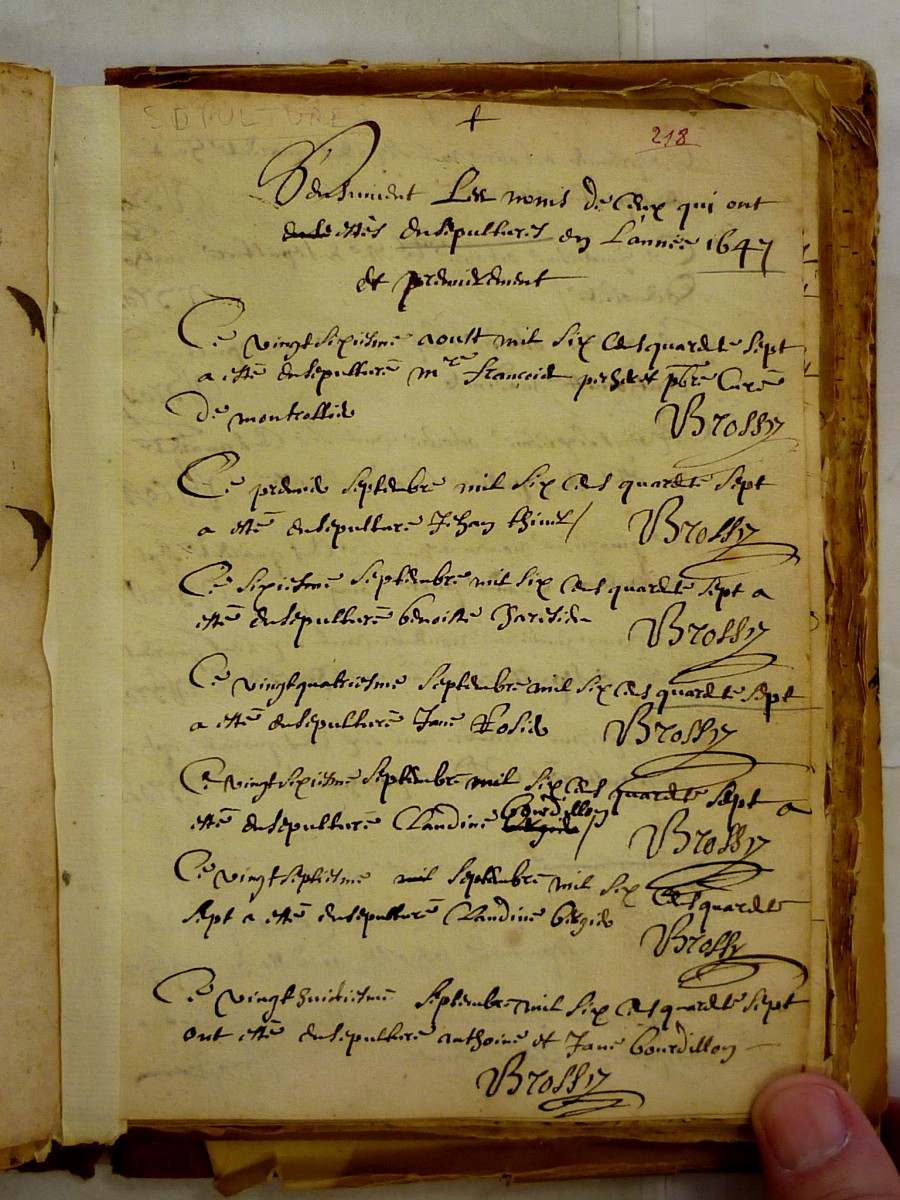 SEPULTURE
218
Sensuivent Les noms de Ceux qui ont
estés ensepulturés en Lannee 1647
et premierement
Ce vingtsixiesme aoust mil six cës quarëte sept
a esté ensepulturé mre François pbre Curé
de montrottier
Brossy
Ce premier septembre mil six cës quarëte sept
a esté ensepulturé Jehan
Brossy
Ce sixiesme septembre mil six cës quarëte sept a
esté ensepulturé benoiste
Brossy
Ce vingtquatriesme septembre mil six cës quarëte sept
a esté ensepulturé Jane Rosier
Brossy
Ce vingtsixiesme septembre mil six cës quarëte sept a
esté ensepulturé Claudine bourdillon
Brossy
Ce vingtseptiesme mil septembre mil six cës quarëte
sept a esté ensepulturé Claudine
Brossy
Ce vingthuictiesme septembre mil six cës quarëte sept
ont esté ensepulturé anthoine et Jane bourdillon
Brossy